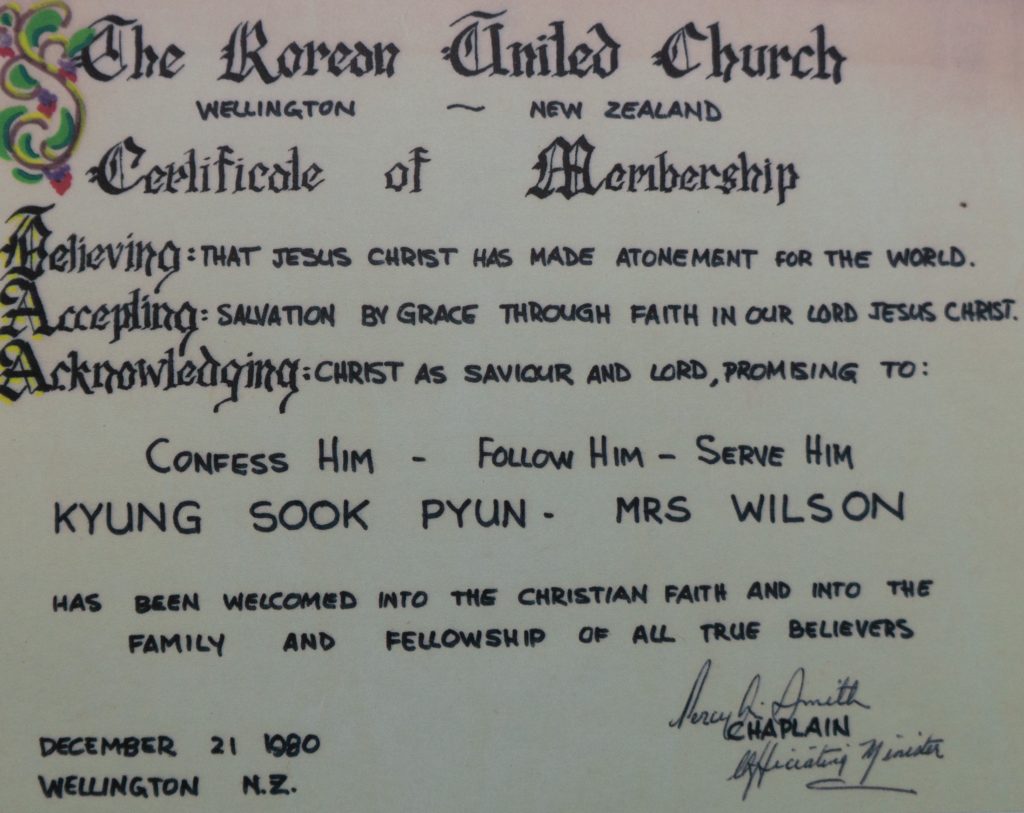 The Korean United Church
WELLINGTON ~ NEW ZEALAND
Certificate of Membership
Believing: THAT JESUS CHRIST HAS MADE ATONEMENT FOR THE WORLD.
Accepting: SALVATION BY GRACE THROUGH FAITH IN OUR LORD JESUS CHRIST.
Acknowledging: CHRIST AS SAVIOUR AND LORD, PROMISING TO:
CONFESS HIM - FOLLOW HIM - SERVE HIM
KYUNG SOOK PYUN - MRS WILSON
HAS BEEN WELCOMED INTO THE CHRISTIAN FAITH AND INTO THE
FAMILY AND FELLOWSHIP OF ALL TRUE BELIEVERS
Percy Q. Smith
CHAPLAIN
Officiating Minister
DECEMBER 21 1980
WELLINGTON N.Z.